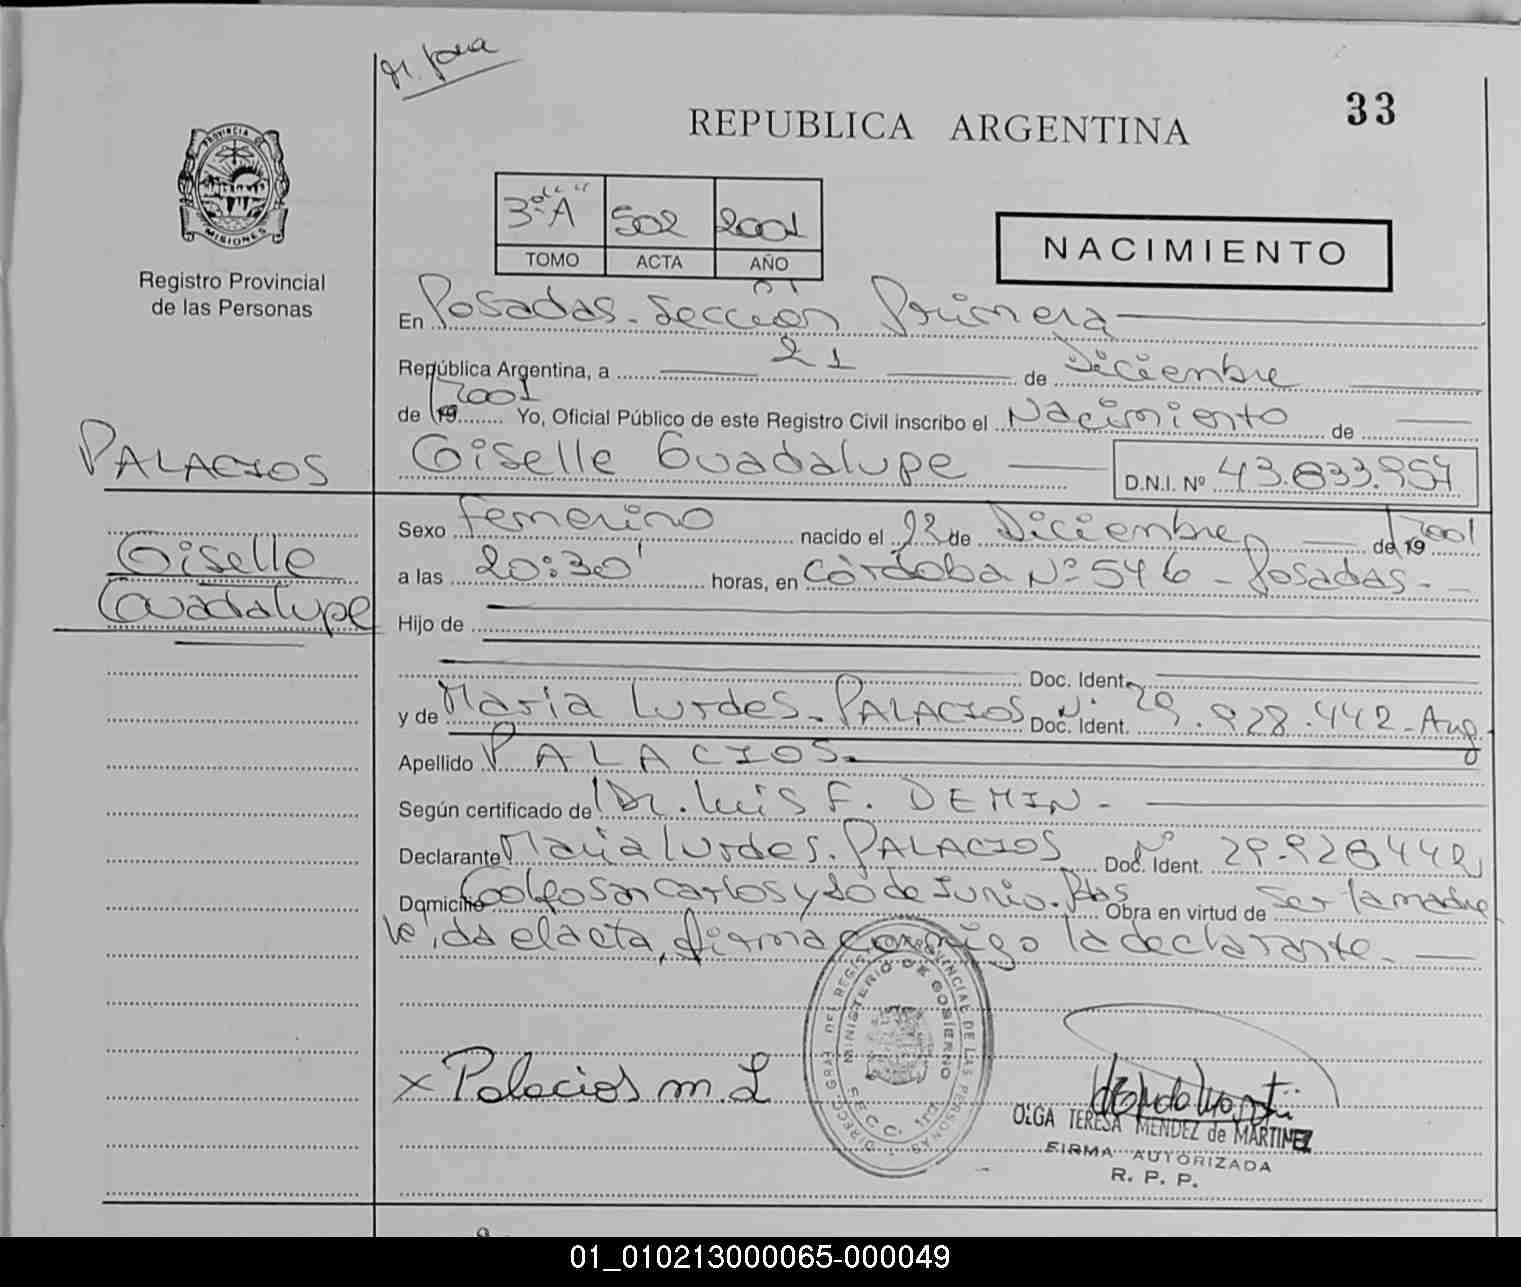 33
REPUBLICA ARGENTINA
PROVINCIA DE
MISIONES
Registro Provincial
de las Personas
3º "A" 502 2001
TOMO ACTA AÑO
NACIMIENTO
En Posadas - Sección Primera
República Argentina, a 21 de Diciembre
de 19 2001 Yo, Oficial Público de este Registro Civil inscribo el Nacimiento de
PALACIOS
Giselle Guadalupe D.N.I. Nº 43.833.957
Sexo femenino nacido el de Diciembre de 19 2001
Giselle
Guadalupe
a las 20:30' horas, en Córdoba Nº 546 - Posadas -
Hijo de
Doc. Ident.
y de Maria Lurdes - PALACIOS Doc. Ident. Nº 29.928.442 - Arg.
Apellido PALACIOS.
Según certificado de Dr. Luis F. DEMIN -
Declarante Maria Lurdes. PALACIOS Doc. Ident. Nº 29.928442
Domicilio Golfo San Carlos y 20 de Junio. Pdas Obra en virtud de ser la madre
leída el acta, firma conmigo la declarante. -
DIRECC. GRAL DEL REGISTRO PROVINCIAL DE LAS PERSONAS
MINISTERIO DE GOBIERNO
SECC. 1ra
x Palacios m. L
OLGA TERESA MENDEZ de MARTINEZ
FIRMA AUTORIZADA
R. P. P.
01_010213000065-000049